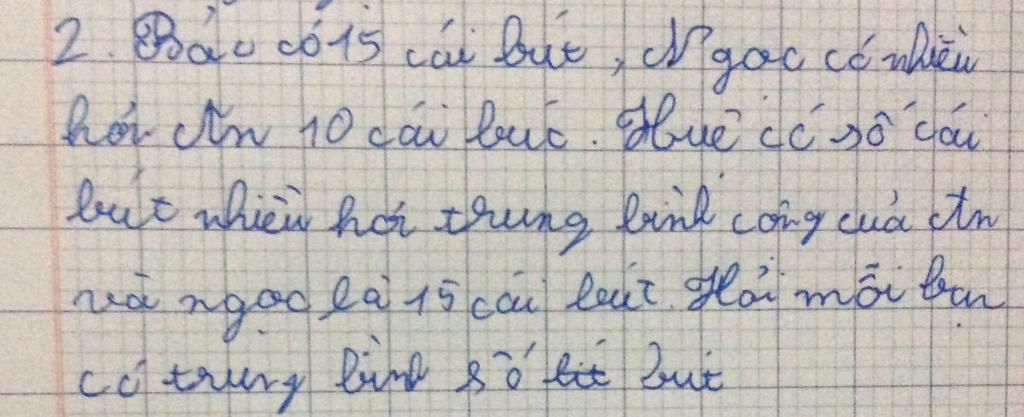 2. Bảo có 15 cái bút, Ngọc có nhiều
hơn An 10 cái bút. Huê có số cái
bút nhiều hơn trung bình cộng của An
và ngọc là 15 cái bút. Hỏi mỗi bạn
có trung bình số bút